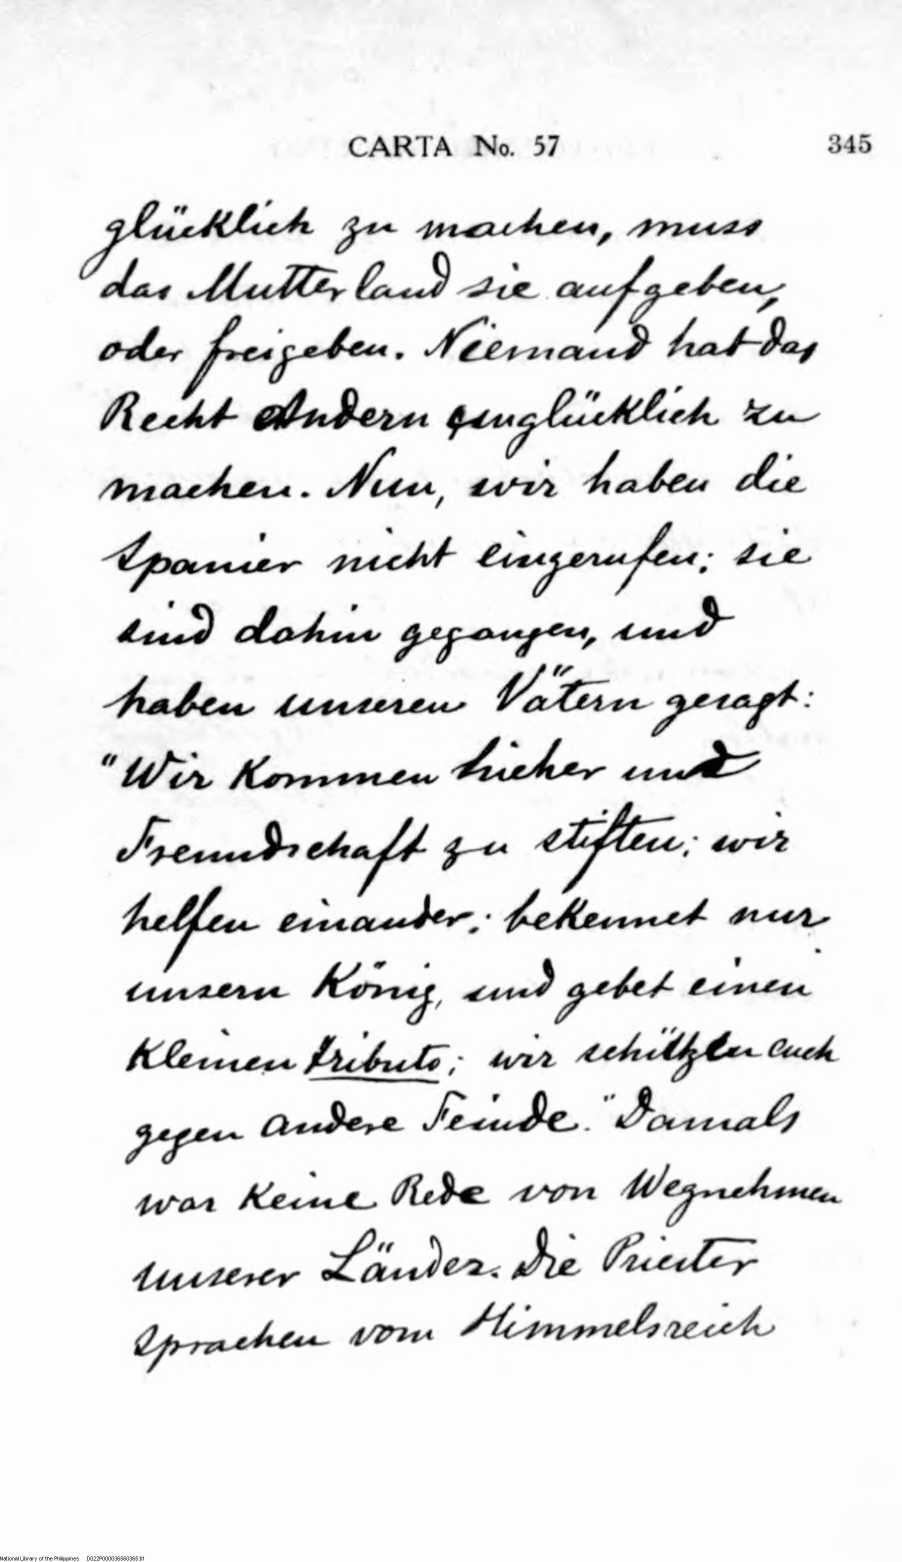 CARTA No. 57 345
glücklich zu machen, muss
das Mutterland sie aufgeben,
oder freigeben. Niemand hat das
Recht Andern unglücklich zu
machen. Nun, wir haben die
Spanier nicht eingerufen; sie
sind dahin gegangen, und
haben unseren Vätern gesagt:
"Wir kommen hieher und
Freundschaft zu stiften; wir
helfen einander; bekennet nur
unsern König, und gebet einen
kleinen Tributo; wir schützen euch
gegen andere Feinde." Damals
war keine Rede von Wegnehmen
unserer Länder. Die Priester
sprachen vom Himmelsreich
National Library of the Philippines